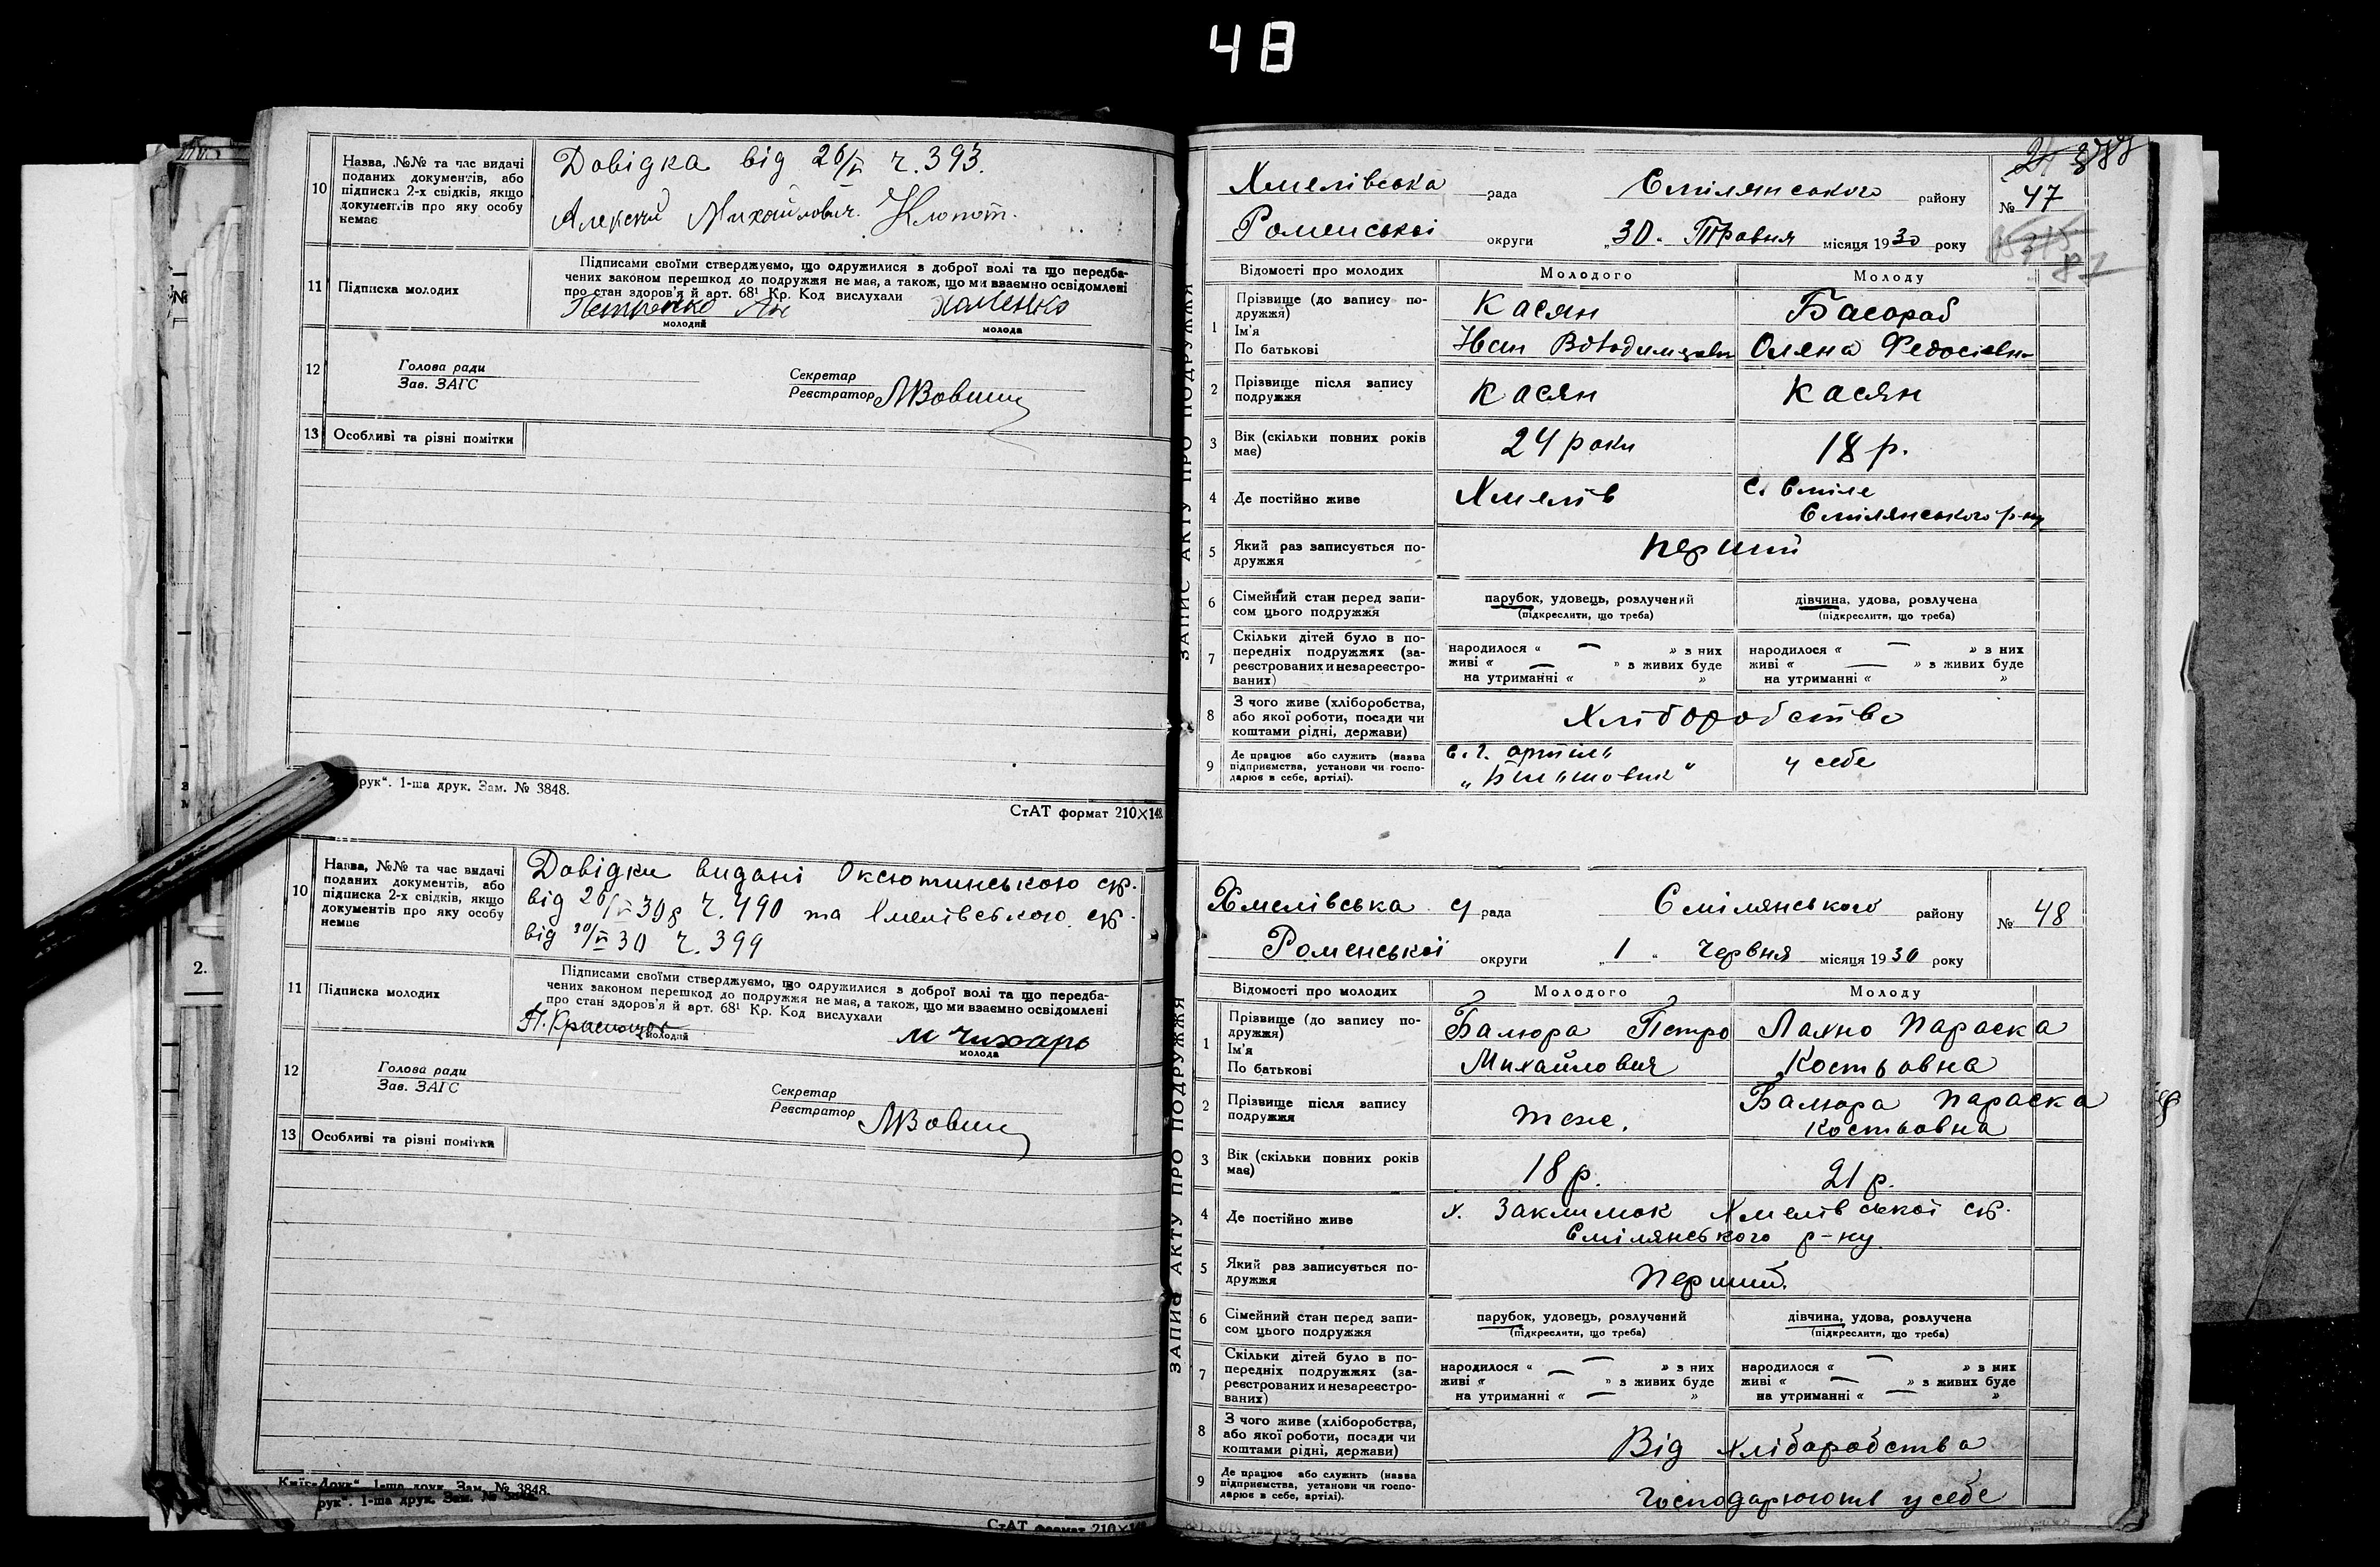 48
10 Назва, №№ та час видачі
поданих документів, або
підписка 2-х свідків, якщо
документів про яку особу
немає
Довідка від 26/V ч. 393.
Алексей Михайлович Клопот.
11 Підписка молодих
Підписами своїми стверджуємо, що одружилися з доброї волі та що передба-
чених законом перешкод до подружжя не має, а також, що ми взаємно освідомлені
про стан здоров'я й арт. 68¹ Кр. Код вислухали
Петренко
молодий
молода
12
Голова ради
Зав. ЗАГС
Секретар
Реєстратор
13 Особливі та різні помітки
друк". 1-ша друк. Зам. № 3848.
СтАТ формат 210×148
10 Назва, №№ та час видачі
поданих документів, або
підписка 2-х свідків, якщо
документів про яку особу
немає
Довідки видані Оксютинською с/р.
від 26/V 30 р ч. 490 та Хмелівською с/р.
від 30/V 30 ч. 399
11 Підписка молодих
Підписами своїми стверджуємо, що одружилися з доброї волі та що передба-
чених законом перешкод до подружжя не має, а також, що ми взаємно освідомлені
про стан здоров'я й арт. 68¹ Кр. Код вислухали
молодий
М Чихарь
молода
12
Голова ради
Зав. ЗАГС
Секретар
Реєстратор
13 Особливі та різні помітки
Київ-Друк". 1-ша друк. Зам. № 3848.
рук". 1-ша друк. Зам. № 3848.
СтАТ формат 210×148
2.
ЗАПИС АКТУ ПРО ПОДРУЖЖЯ
Хмелівська рада Смілянського району № 47
Роменської округи „30" Травня місяця 1930 року
87
Відомості про молодих Молодого Молоду
1 Прізвище (до запису по-
дружжя)
Ім'я
По батькові
Касян Басараб
Иван Володимирович Олена Федосіевна
2 Прізвище після запису
подружжя
Касян Касян
3 Вік (скільки повних років
має)
24 роки 18 р.
4 Де постійно живе Хмелів с. Сміле
Смілянського р-ну
5 Який раз записується по-
дружжя
перший
6 Сімейний стан перед запи-
сом цього подружжя
парубок, удовець, розлучений
(підкреслити, що треба)
дівчина, удова, розлучена
(підкреслити, що треба)
7 Скільки дітей було в по-
передніх подружжях (за-
реєстрованих и незареєстро-
ваних)
народилося « — » з них
живі « — » з живих буде
на утриманні « »
народилося « — » з них
живі « — » з живих буде
на утриманні « »
8 З чого живе (хліборобства,
або якої роботи, посади чи
коштами рідні, держави)
Хліборобство
9 Де працює або служить (назва
підприємства, установи чи госпо-
дарює в себе, артілі).
с. г. артіль
„Більшовик"
у себе
ЗАПИС АКТУ ПРО ПОДРУЖЖЯ
Хмелівська с/рада Смілянського району № 48
Роменської округи „1" Червня місяця 1930 року
Відомості про молодих Молодого Молоду
1 Прізвище (до запису по-
дружжя)
Ім'я
По батькові
Балюра Петро Лахно Параска
Михайлович Костьовна
2 Прізвище після запису
подружжя
теж. Балюра Параска
Костьовна
3 Вік (скільки повних років
має)
18 р. 21 р.
4 Де постійно живе х. Заклимок Хмелівської с/р.
Смілянського р-ну
5 Який раз записується по-
дружжя
Перший.
6 Сімейний стан перед запи-
сом цього подружжя
парубок, удовець, розлучений
(підкреслити, що треба)
дівчина, удова, розлучена
(підкреслити, що треба)
7 Скільки дітей було в по-
передніх подружжях (за-
реєстрованих и незареєстро-
ваних)
народилося « — » з них
живі « — » з живих буде
на утриманні « — »
народилося « — » з них
живі « — » з живих буде
на утриманні « — »
8 З чого живе (хліборобства,
або якої роботи, посади чи
коштами рідні, держави)
Від хліборобства
9 Де працює або служить (назва
підприємства, установи чи госпо-
дарює в себе, артілі).
Господарюють у себе